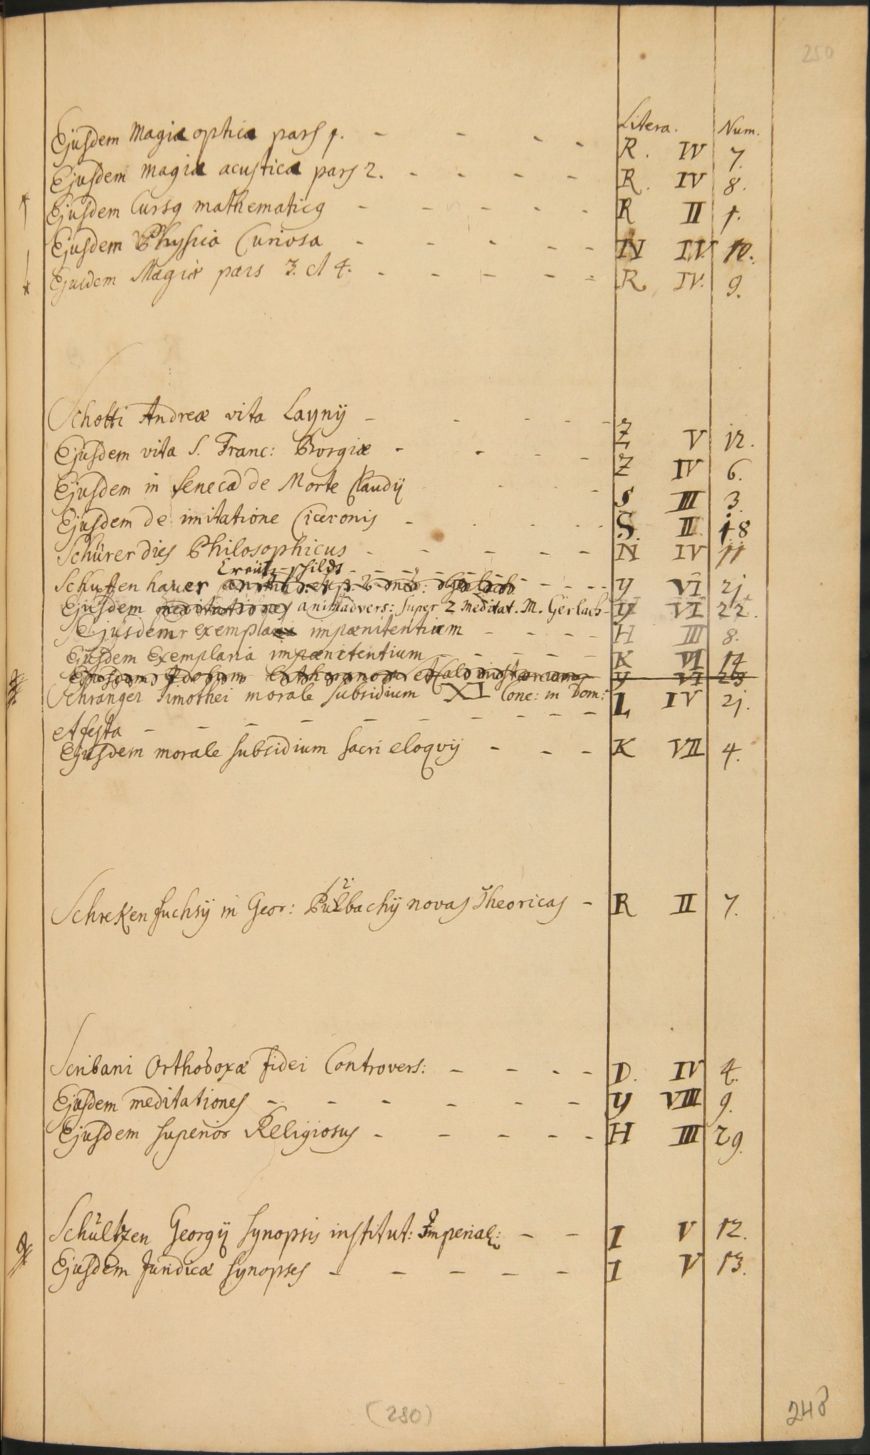 250
Litera. Num.
Ejusdem Magiæ optica pars 1. - - - - R. IV 7.
Ejusdem magiæ acustica pars 2. - - - - R. IV 8.
Ejusdem Cursq mathematicq - - - - - R II 1.
Ejusdem Physica Curiosa - - - - - N IV 10.
Ejusdem Magiæ pars 3. et 4. - - - - - R IV. 9.
Schotti Andreæ vita Laynij - - - - Z V 12.
Ejusdem vita S. Franc: Borgiæ - - - - Z IV 6.
Ejusdem in Seneca de Morte Claudij - - - S III 3.
Ejusdem de imitatione Ciceronis - - - - S. II 18
Schürer dies Philosophicus - - - - - N IV 11
Schutten hauer - - - y VI 21.
Ejusdem animadvers: super 2 meditat. M. Gerlach y VI 22.
Ejusdem exempla impænitentium - - - H III 8.
Ejusdem Exemplaria impænitentium - - - - K VI 14
y VI 23
Schranger Timothei morale subsidium XI Conc: in Dom: L IV 21.
et festa - - - - - - - - -
Ejusdem morale subsidium sacri eloqvij - - - K VII 4.
Schreken fuchsij in Geor: Purbachij novas Theoricas - R II 7.
Scribani Orthodoxæ fidei Controvers: - - - - D. IV 4.
Ejusdem meditationes - - - - - - y VIII 9.
Ejusdem superior Religiosus - - - - - H III 29.
Schultzen Georgij synopsis institut: Imperial: - - I V 12.
Ejusdem Juridicæ synopses - - - - - I V 13.
(280)
248